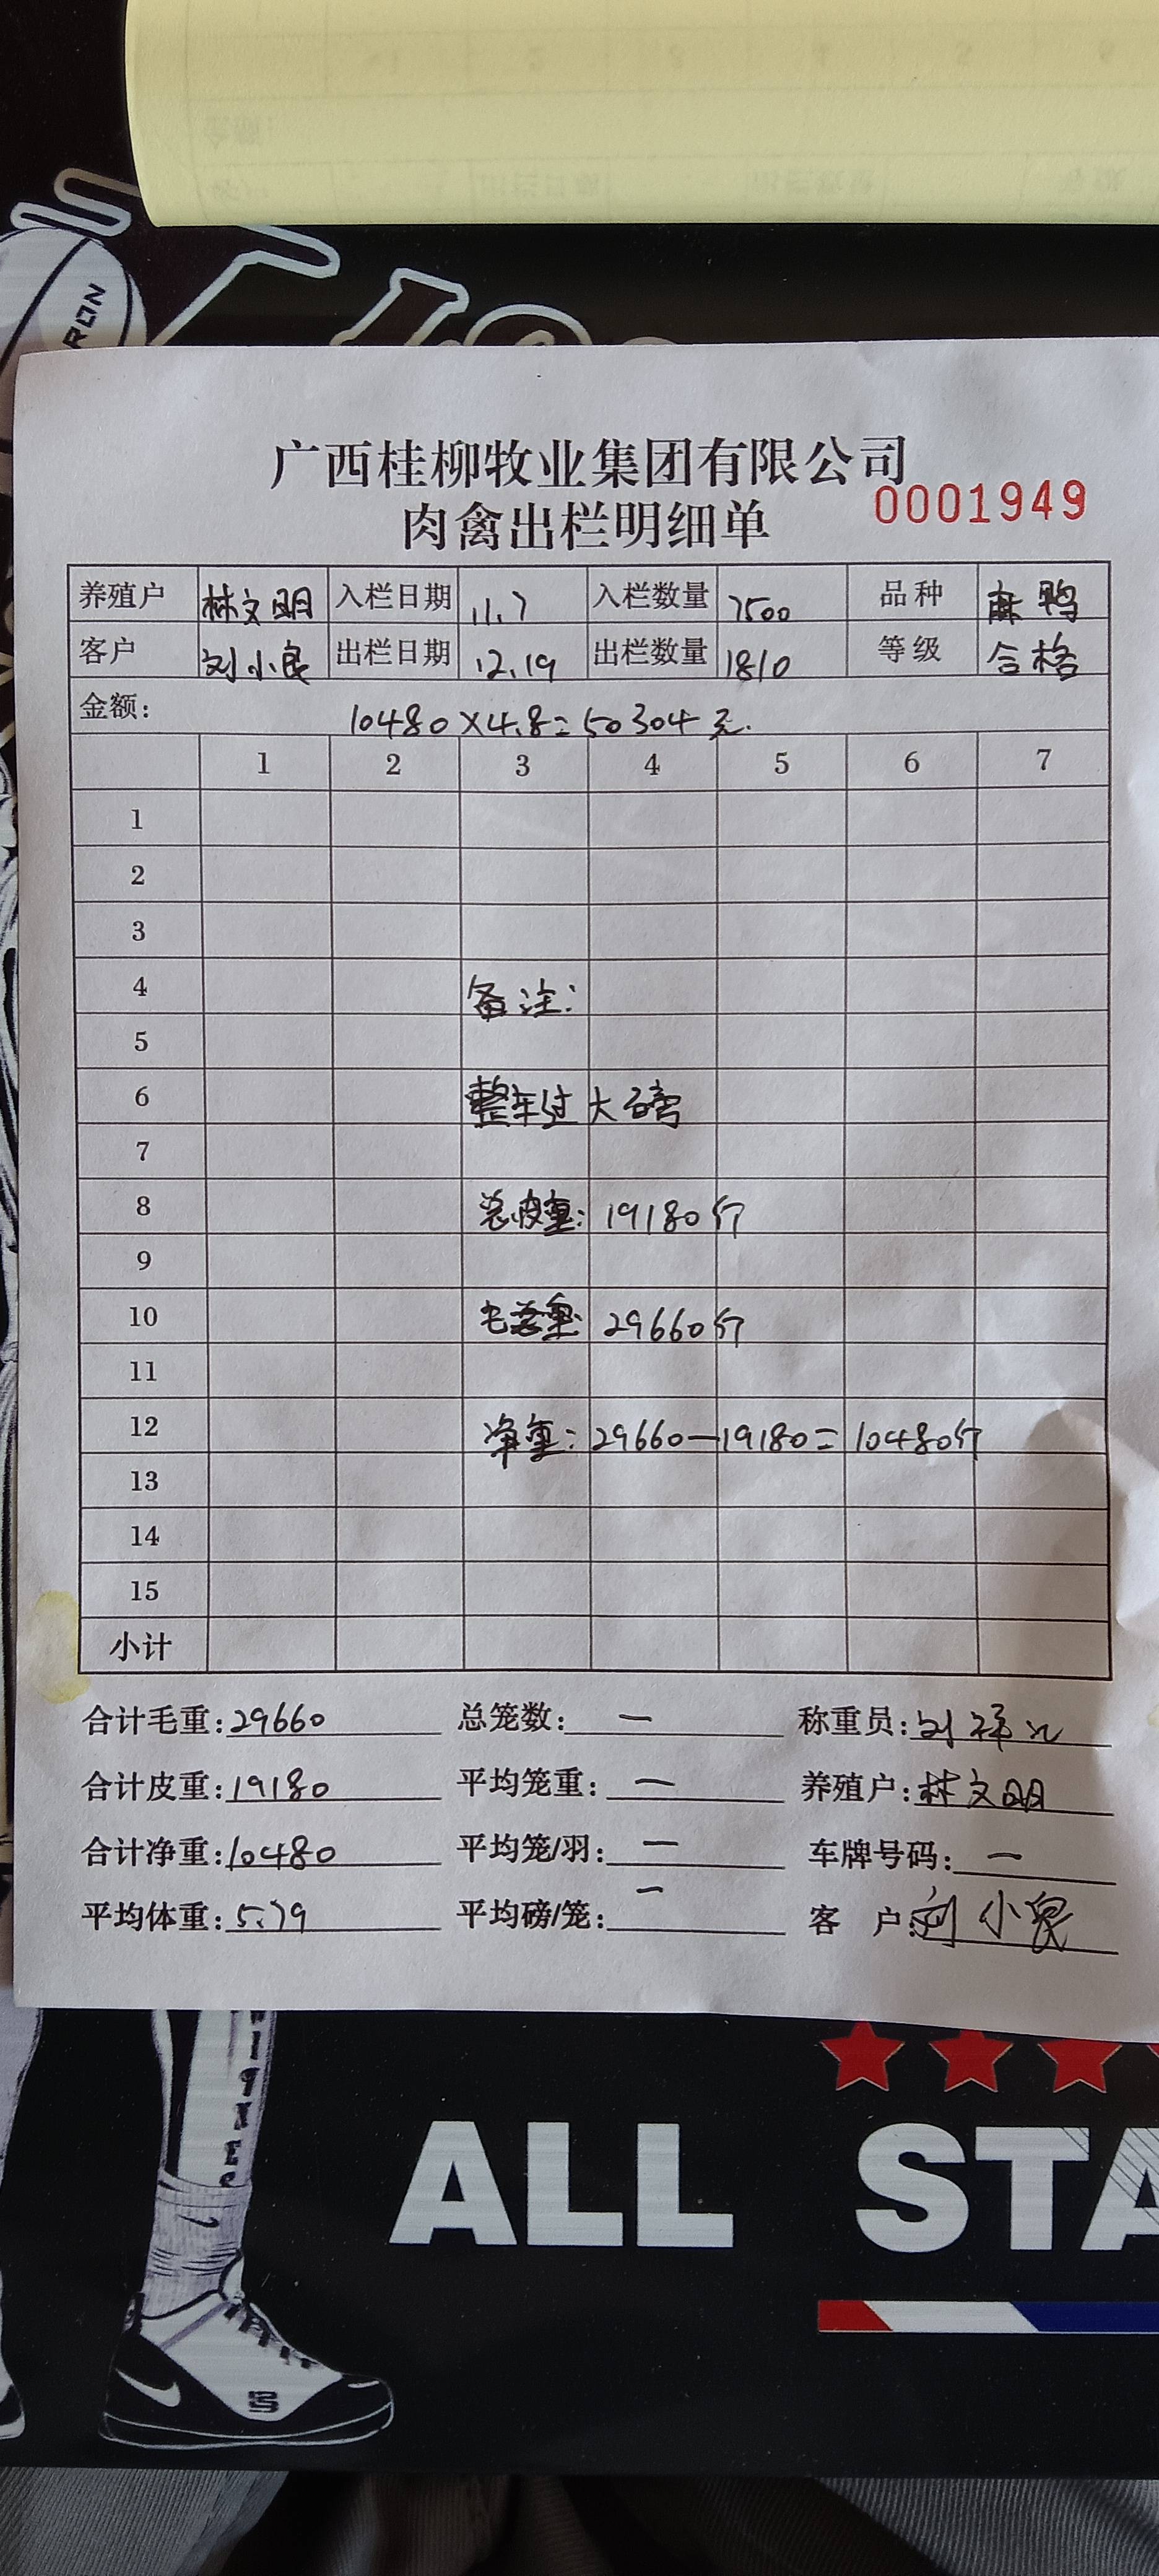 RON
广西桂柳牧业集团有限公司
肉禽出栏明细单
0001949
养殖户 林文明 入栏日期 11.7 入栏数量 7500 品种 麻鸭
客户 刘小良 出栏日期 12.19 出栏数量 1810 等级 合格
金额: 10480×4.8=50304元.
1 2 3 4 5 6 7
1
2
3
4 备注:
5
6 整车过大磅
7
8 总皮重: 19180斤
9
10 毛总重: 29660斤
11
12 净重: 29660—19180=10480斤
13
14
15
小计
合计毛重: 29660 总笼数: — 称重员: 刘祥
合计皮重: 19180 平均笼重: — 养殖户: 林文明
合计净重: 10480 平均笼/羽: — 车牌号码: —
平均体重: 5.79 平均磅/笼: — 客户: 刘小良
ALL STA